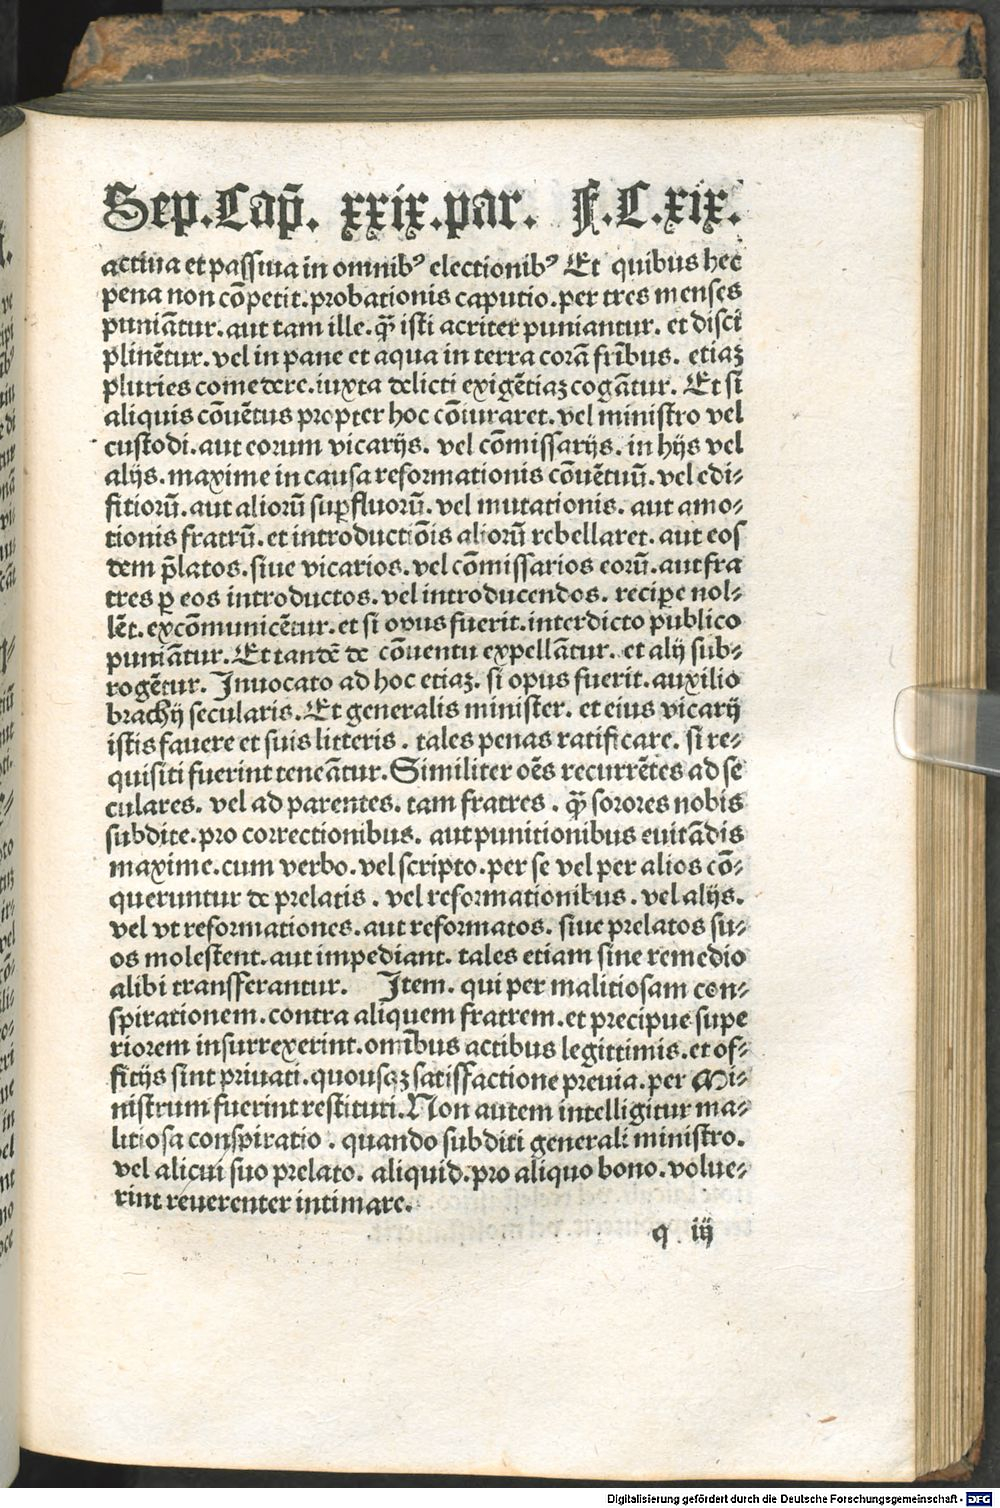 Sep.Cap̄. xxix.par. F.C.xix.
actiua et passiua in omnibꝰ electionibꝰ Et quibus hec
pena non cōpetit.probationis caputio.per tres menses
puniātur.aut tam ille.q̄ȝ isti acriter puniantur. et disci
plinētur.vel in pane et aqua in terra corā frībus. etiaȝ
pluries comedere.iuxta delicti exigētiaȝ cogātur. Et si
aliquis cōuētus propter hoc cōiuraret.vel ministro vel
custodi.aut eorum vicarijs. vel cōmissarijs. in hijs vel
alijs.maxime in causa reformationis cōuētuū.vel edi⸗
fitiorū.aut aliorū suꝑfluorū.vel mutationis. aut amo⸗
tionis fratrū.et introductiōis aliorū rebellaret.aut eos
dem p̄latos.siue vicarios.vel cōmissarios eorū.aut fra
tres ꝑ eos introductos.vel introducendos. reciꝑe nol⸗
lēt.excōmunicētur.et si opus fuerit.interdicto publico
puniātur.Et tandē de cōuentu expellātur.et alij sub⸗
rogētur. Inuocato ad hoc etiaȝ.si opus fuerit.auxilio
brachij secularis.Et generalis minister. et eius vicarij
istis fauere et suis litteris. tales penas ratificare. si re⸗
quisiti fuerint teneātur.Similiter oēs recurrētes ad se
culares. vel ad parentes. tam fratres. q̄ȝ sorores nobis
subdite.pro correctionibus. aut punitionibus euitādis
maxime.cum verbo.vel scripto.per se vel per alios cō⸗
queruntur de prelatis. vel reformationibus. vel alijs.
vel vt reformationes.aut reformatos. siue prelatos su⸗
os molestent.aut impediant. tales etiam sine remedio
alibi transfferantur. Item. qui per malitiosam con⸗
spirationem.contra aliquem fratrem.et precipue supe
riorem insurrexerint.omībus actibus legittimis.et of⸗
fitijs sint priuati.quousqȝ satisfactione preuia.per Mi⸗
nistrum fuerint restituti.Non autem intelligitur ma⸗
litiosa conspiratio. quando subditi generali ministro.
vel alicui suo prelato. aliquid.pro aliquo bono.volue⸗
rint reuerenter intimare.
q iij
Digitalisierung gefördert durch die Deutsche Forschungsgemeinschaft - DFG